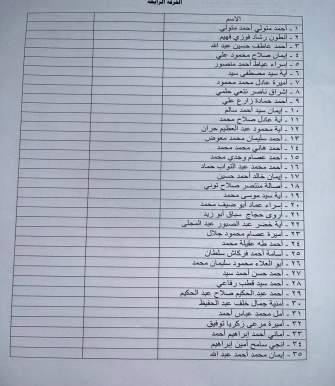 الفرقة الرابعة
الاسم
١ - احمد متولي أحمد متولي
٢ - أنطون رشاد فوزي فهيم
٣ - أحمد عاطف حسين عبد الله
٤ - إيمان صلاح محمود علي
٥ - إسراء عياط أحمد منصور
٦ - آية سيد مصطفى سيد
٧ - أميرة عادل محمد محمود
٨ - إشراق ناصر نتعي حلمي
٩ - أحمد حمادة زارع علي
١٠ - إيمان سيد أحمد سالم
١١ - آية عادل صلاح محمد
١٢ - آية محمود عبد العظيم حران
١٣ - أحمد سليمان محمد معوض
١٤ - أحمد هاني محمد محمد
١٥ - أحمد عصام وجدي محمد
١٦ - أحمد محمد عبد التواب حماد
١٧ - إيمان خالد أحمد حسين
١٨ - أصالة منتصر صلاح توني
١٩ - آية سيد موسى محمد
٢٠ - إسراء عماد ابو ضيف محمد
٢١ - أروى حجاج سباق أبو زيد
٢٢ - آية خضر عبد الصبور عبد المجلى
٢٣ - أميرة عصام محمود جلال
٢٤ - أحمد طه عقيلة محمد
٢٥ - أسامة أحمد فركاش سلطان
٢٦ - أبو العلاء محمود سليمان محمد
٢٧ - أحمد حسن أحمد سيد
٢٨ - أحمد سيد قطب رفاعي
٢٩ - أحمد عبد الحكيم صلاح عبد الحكيم
٣٠ - أمنية جمال خلف عبد الحفيظ
٣١ - أمل محمد عباس أحمد
٣٢ - أميرة مرعي زكريا توفيق
٣٣ - أماني أحمد ابراهيم أحمد
٣٤ - انجي سامح أمين إبراهيم
٣٥ - إيمان محمد أحمد عبد الله